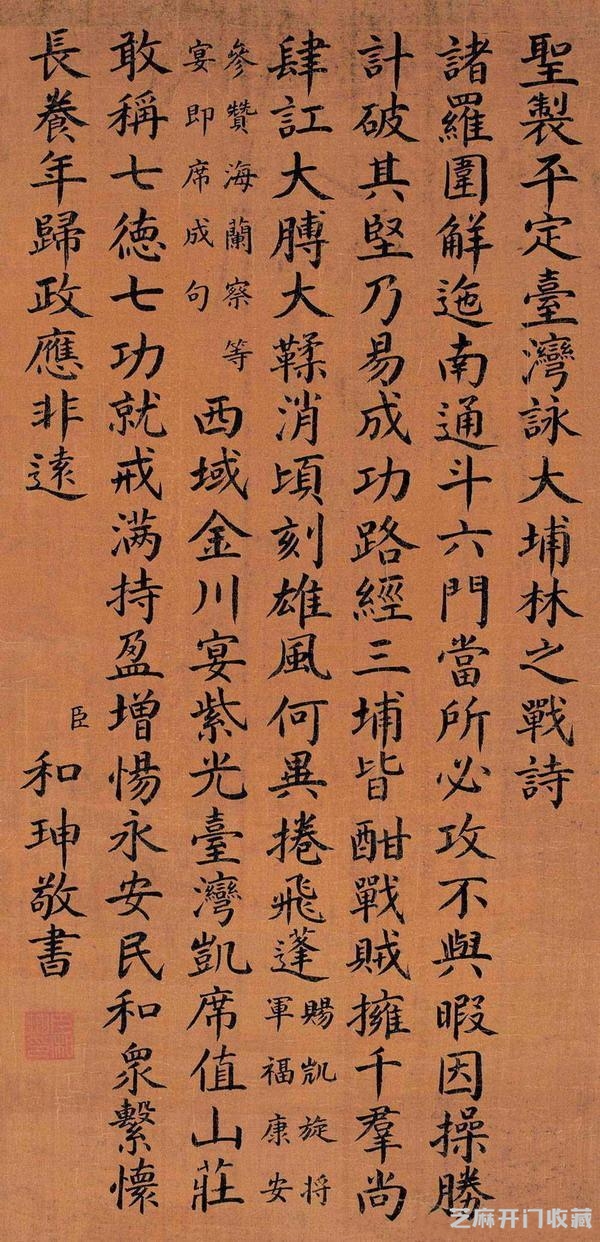 聖製平定臺灣詠大埔林之戰詩
諸羅圍解迤南通斗六門當所必攻不與暇因操勝
計破其堅乃易成功路經三埔皆酣戰賊擁千羣尚
肆訌大膊大鞣消頃刻雄風何異捲飛蓬
賜凱旋将
軍福康安
參贊海蘭察等
宴即席成句
西域金川宴紫光臺灣凱席值山莊
敢稱七德七功就戒满持盈增惕永安民和衆繫懷
長養年歸政應非遠
臣
和珅敬書
芝麻开门收藏